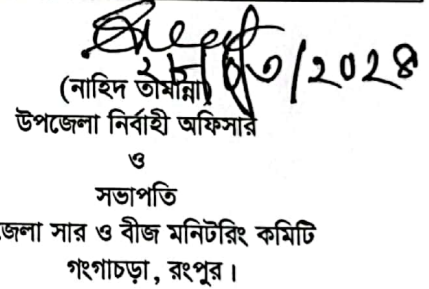 ২৮/০৩/২০২৪
(নাহিদ তামান্না)
উপজেলা নির্বাহী অফিসার
ও
সভাপতি
জেলা সার ও বীজ মনিটরিং কমিটি
গংগাচড়া, রংপুর।